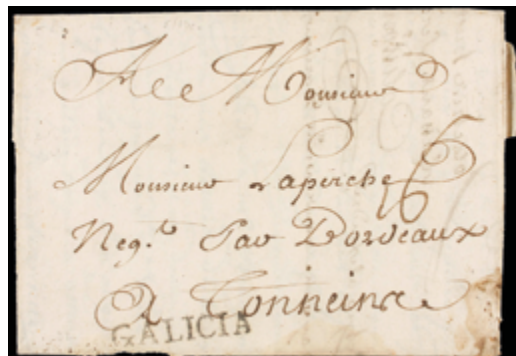 A Monsieur
Monsieur Laperche
Neg.t Par Bordeaux
A Tonneins
GALICIA